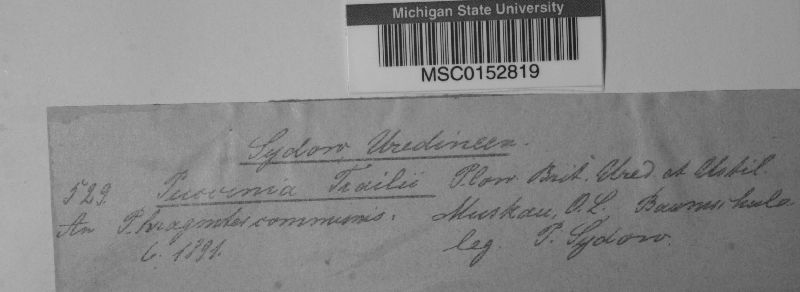 Michigan State University
MSC0152819
Sydow Uredineen.
529. Puccinia Trailii Plow. Brit. Ured et Ustil
An Phragmites communis. Muskau, O.L. Baumschule
6. 1891. leg. P. Sydow.